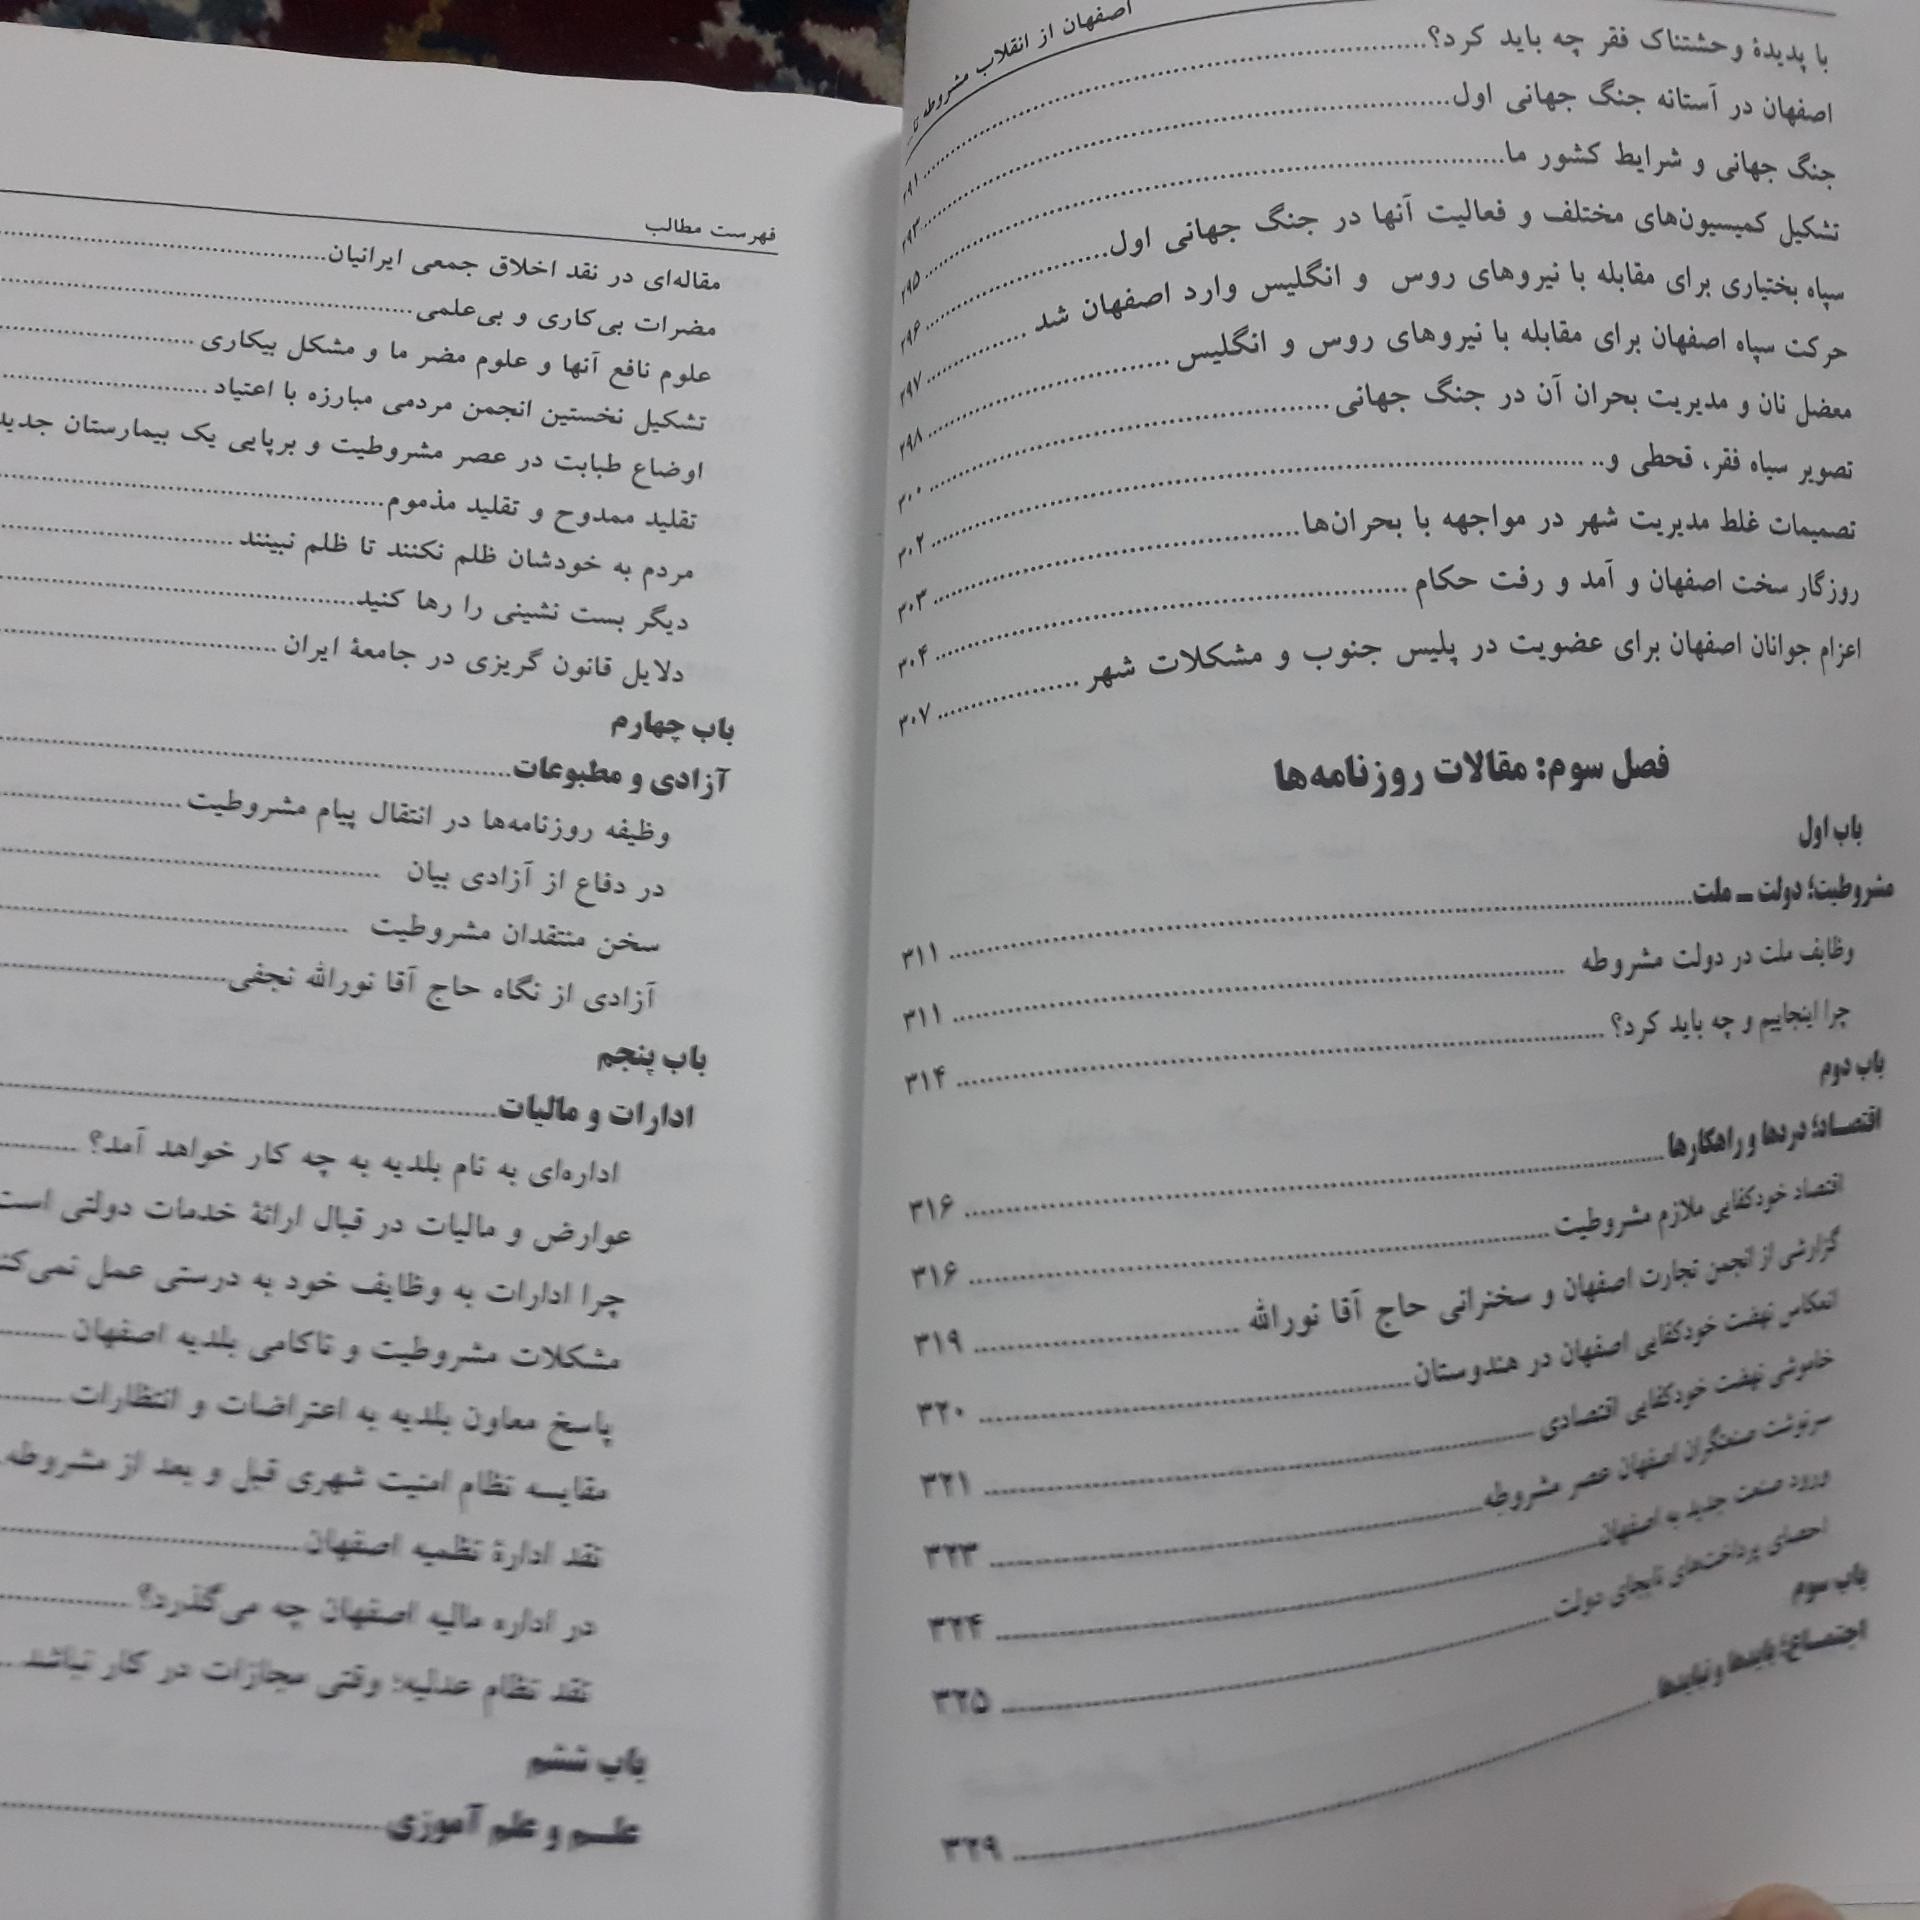 اصفهان از انقلاب مشروطه تا
با پدیدهٔ وحشتناک فقر چه باید کرد؟ ۲۹۱
اصفهان در آستانه جنگ جهانی اول ۲۹۳
جنگ جهانی و شرایط کشور ما ۲۹۵
تشکیل کمیسیون‌های مختلف و فعالیت آنها در جنگ جهانی اول ۲۹۶
سپاه بختیاری برای مقابله با نیروهای روس و انگلیس وارد اصفهان شد ۲۹۷
حرکت سپاه اصفهان برای مقابله با نیروهای روس و انگلیس ۲۹۸
معضل نان و مدیریت بحران آن در جنگ جهانی ۳۰۰
تصویر سیاه فقر، قحطی و.. ۳۰۲
تصمیمات غلط مدیریت شهر در مواجهه با بحران‌ها ۳۰۳
روزگار سخت اصفهان و آمد و رفت حکام ۳۰۴
اعزام جوانان اصفهان برای عضویت در پلیس جنوب و مشکلات شهر ۳۰۷
فصل سوم: مقالات روزنامه‌ها
باب اول
مشروطیت؛ دولت ـ ملت ۳۱۱
وظایف ملت در دولت مشروطه ۳۱۱
چرا اینجاییم و چه باید کرد؟ ۳۱۴
باب دوم
اقتصاد؛ دردها و راهکارها ۳۱۶
اقتصاد خودکفایی ملازم مشروطیت ۳۱۶
گزارشی از انجمن تجارت اصفهان و سخنرانی حاج آقا نورالله ۳۱۹
انعکاس نهضت خودکفایی اصفهان در هندوستان ۳۲۰
خاموشی نهضت خودکفایی اقتصادی ۳۲۱
سرنوشت صنعتگران اصفهان عصر مشروطه ۳۲۳
ورود صنعت جدید به اصفهان ۳۲۴
احصای پرداخت‌های نابجای دولت ۳۲۵
باب سوم
اجتماع؛ بایدها و نبایدها ۳۲۹
فهرست مطالب
مقاله‌ای در نقد اخلاق جمعی ایرانیان
مضرات بی‌کاری و بی‌علمی
علوم نافع آنها و علوم مضر ما و مشکل بیکاری
تشکیل نخستین انجمن مردمی مبارزه با اعتیاد
اوضاع طبابت در عصر مشروطیت و برپایی یک بیمارستان جدید
تقلید ممدوح و تقلید مذموم
مردم به خودشان ظلم نکنند تا ظلم نبینند
دیگر بست نشینی را رها کنید
دلایل قانون گریزی در جامعهٔ ایران
باب چهارم
آزادی و مطبوعات
وظیفه روزنامه‌ها در انتقال پیام مشروطیت
در دفاع از آزادی بیان
سخن منتقدان مشروطیت
آزادی از نگاه حاج آقا نورالله نجفی
باب پنجم
ادارات و مالیات
اداره‌ای به نام بلدیه به چه کار خواهد آمد؟
عوارض و مالیات در قبال ارائهٔ خدمات دولتی است
چرا ادارات به وظایف خود به درستی عمل نمی‌کن
مشکلات مشروطیت و ناکامی بلدیه اصفهان
پاسخ معاون بلدیه به اعتراضات و انتظارات
مقایسه نظام امنیت شهری قبل و بعد از مشروطه
نقد ادارهٔ نظمیه اصفهان
در اداره مالیه اصفهان چه می‌گذرد؟
نقد نظام عدلیه؛ وقتی مجازات در کار نباشد
باب ششم
علم و علم آموزی